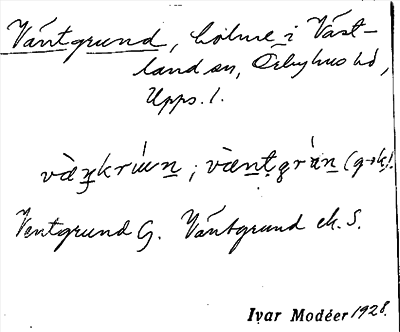 Väntgrund, holme i Väst-
landsn, Örbyhus hd,
Upps. l.
Ventgrund G. Väntgrund ek. S.
Ivar Modéer 1928.